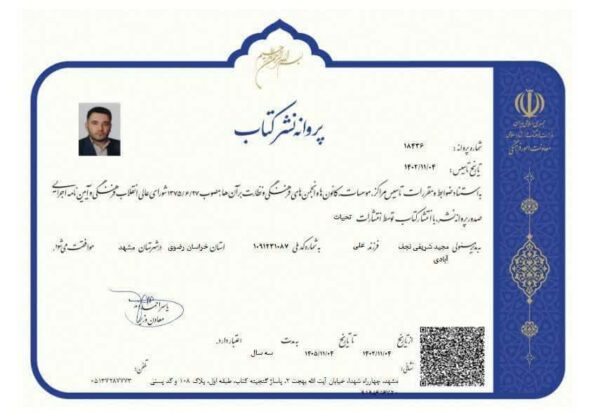 بسم الله الرحمن الرحیم
جمهوری اسلامی ایران
وزارت فرهنگ و ارشاد اسلامی
معاونت امور فرهنگی
پروانه نشر کتاب
شماره پروانه: ۱۸۴۳۶
تاریخ تاسیس: ۱۴۰۲/۱۱/۰۴
به استناد ضوابط و مقررات تاسیس مراکز، موسسات، کانون ها و انجمن های فرهنگی و نظارت بر آن ها، مصوب ۱۳۷۵/۶/۲۷ شورای عالی انقلاب فرهنگی و آیین نامه اجرایی
صدور پروانه نشر، با انتشار کتاب توسط انتشارات تحیات
به مدیر مسئولی مجید شریفی نجف آبادی فرزند علی به شماره کد ملی ۱۰۹۱۲۳۱۰۸۷ استان خراسان رضوی در شهرستان مشهد موافقت می شود.
یاسر احمدوند
معاون وزیر
از تاریخ ۱۴۰۲/۱۱/۰۴ تا تاریخ ۱۴۰۵/۱۱/۰۴ به مدت سه سال اعتبار دارد.
نشانی: مشهد، چهارراه شهدا، خیابان آیت الله بهجت ۲، پاساژ گنجینه کتاب، طبقه اول، پلاک ۱۰۸ و کد پستی
تلفن: ۰۵۱۳۷۲۸۷۷۷۳